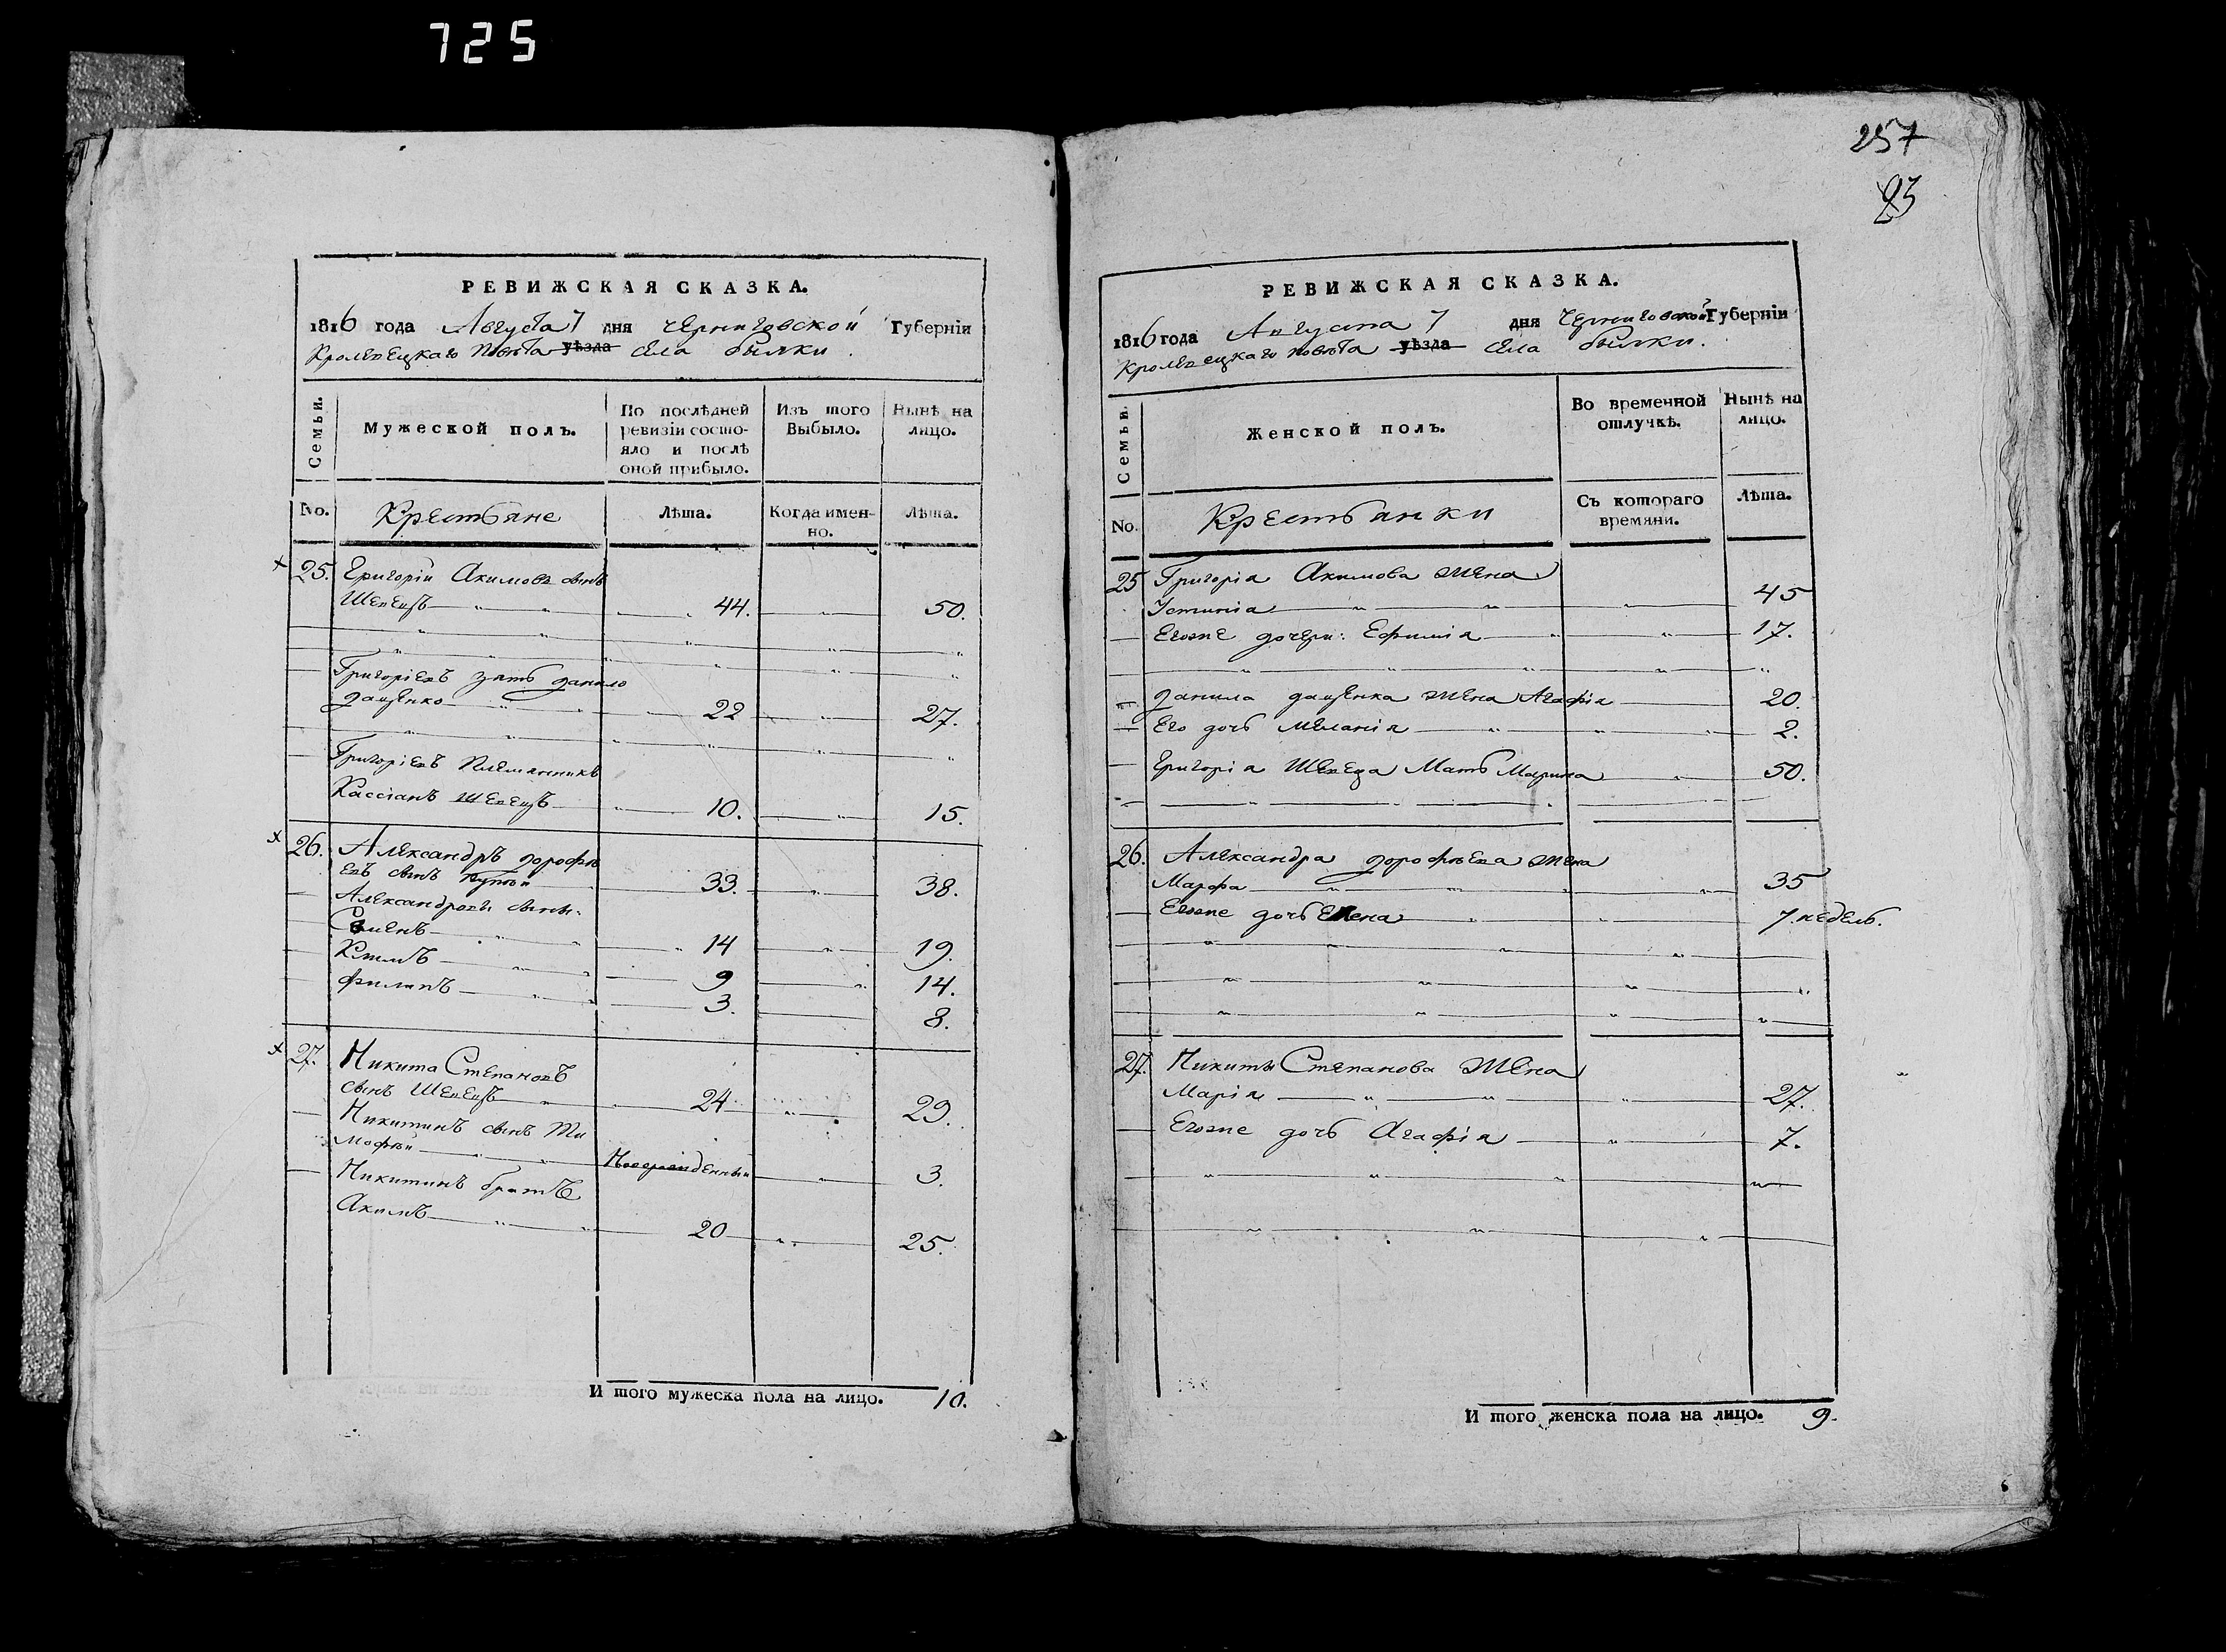 725
257
93
РЕВИЖСКАЯ СКАЗКА.
1816 года Августа 7 дня Черниговской Губерніи
Кролевецкаго Повѣта уѣзда села быики
Семьи.
Мужеской полъ.
По послѣдней ревизіи состо-
яло и послѣ
оной прибыло.
Изъ того
Выбыло.
Нынѣ на
лицо.
No.
Крестьяне
Лѣта.
Когда имен-
но.
Лѣта.
25. Григорій Акимовъ сынъ
Швецъ 44. 50.
Григоріевъ зять данило
даценко 22 27.
Григоріевъ Племянникъ
Кассіанъ Швецъ 10. 15.
26. Александръ дорофѣ
евъ сынъ 33. 38.
Александровы сыны:
Семенъ 14 19.
Климъ 9 14.
филипъ 3. 8.
27. Никита Степановъ
сынъ Швецъ 24 29.
Никитинъ сынъ Ти
мофѣй Новорожденный 3.
Никитинъ братъ
Акимъ 20 25.
И того мужеска пола на лицо. 10.
РЕВИЖСКАЯ СКАЗКА.
1816 года Августа 7 дня Черниговской Губерніи
Кролевецкаго повѣта уѣзда села
Семьи.
Женской полъ.
Во временной
отлучкѣ.
Нынѣ на
лицо.
No.
Крестьянки
Съ котораго
времяни.
Лѣта.
25 Григорія Акимова жена
Устинія 45
Егоже дочери: Ефимія 17.
данила даценка жена Агафія 20.
Его дочь Меланія 2.
Григорія Швеца Мать Марина 50.
26. Александра дорофѣева жена
Марфа 35
Егоже дочь Елена 7 недель.
27. Никиты Степанова жена
Марія 27.
Егоже дочь Агафія 7.
И того женска пола на лицо. 9.